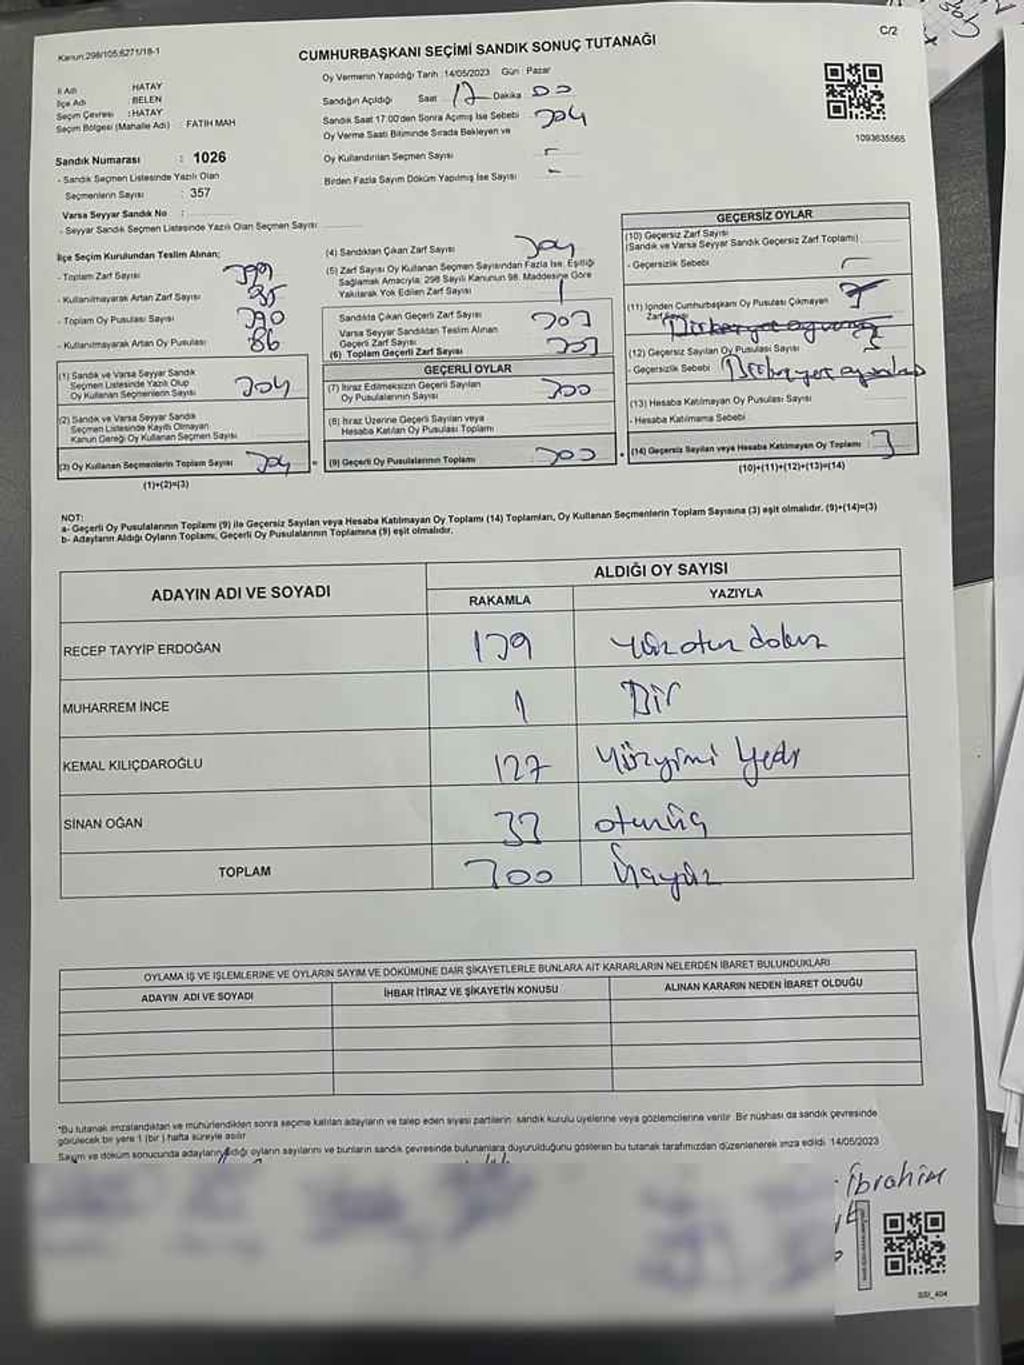 Kanun:298/105;6271/18-1
C/2
CUMHURBAŞKANI SEÇİMİ SANDIK SONUÇ TUTANAĞI
İl Adı : HATAY
İlçe Adı BELEN
Seçim Çevresi : HATAY
Seçim Bölgesi (Mahalle Adı) : FATİH MAH
Sandık Numarası : 1026
- Sandık Seçmen Listesinde Yazılı Olan
Seçmenlerin Sayısı : 357
Varsa Seyyar Sandık No :
- Seyyar Sandık Seçmen Listesinde Yazılı Olan Seçmen Sayısı
Oy Vermenin Yapıldığı Tarih :14/05/2023 Gün : Pazar
Sandığın Açıldığı Saat 17 Dakika 00
Sandık Saat 17:00'den Sonra Açılmış İse Sebebi
304
Oy Verme Saati Bitiminde Sırada Bekleyen ve
Oy Kullandırılan Seçmen Sayısı -
Birden Fazla Sayım Döküm Yapılmış İse Sayısı -
1093635565
İlçe Seçim Kurulundan Teslim Alınan;
- Toplam Zarf Sayısı
- Kullanılmayarak Artan Zarf Sayısı
- Toplam Oy Pusulası Sayısı 390
- Kullanılmayarak Artan Oy Pusulası 86
(1) Sandık ve Varsa Seyyar Sandık
Seçmen Listesinde Yazılı Olup
Oy Kullanan Seçmenlerin Sayısı 304
(2) Sandık ve Varsa Seyyar Sandık
Seçmen Listesinde Kayıtlı Olmayan
Kanun Gereği Oy Kullanan Seçmen Sayısı
(3) Oy Kullanan Seçmenlerin Toplam Sayısı 304
(1)+(2)=(3)
(4) Sandıktan Çıkan Zarf Sayısı 304
(5) Zarf Sayısı Oy Kullanan Seçmen Sayısından Fazla İse, Eşitliği
Sağlamak Amacıyla; 298 Sayılı Kanunun 98. Maddesine Göre
Yakılarak Yok Edilen Zarf Sayısı
Sandıkta Çıkan Geçerli Zarf Sayısı 303
Varsa Seyyar Sandıktan Teslim Alınan
Geçerli Zarf Sayısı
(6) Toplam Geçerli Zarf Sayısı 303
GEÇERLİ OYLAR
(7) İtiraz Edilmeksizin Geçerli Sayılan
Oy Pusulalarının Sayısı 300
(8) İtiraz Üzerine Geçerli Sayılan veya
Hesaba Katılan Oy Pusulası Toplamı
= (9) Geçerli Oy Pusulalarının Toplamı 300
GEÇERSİZ OYLAR
(10) Geçersiz Zarf Sayısı
(Sandık ve Varsa Seyyar Sandık Geçersiz Zarf Toplamı)
- Geçersizlik Sebebi -
(11) İçinden Cumhurbaşkanı Oy Pusulası Çıkmayan
Zarf Sayısı
(12) Geçersiz Sayılan Oy Pusulası Sayısı 3
- Geçersizlik Sebebi
(13) Hesaba Katılmayan Oy Pusulası Sayısı
- Hesaba Katılmama Sebebi
+ (14) Geçersiz Sayılan veya Hesaba Katılmayan Oy Toplamı : 3
(10)+(11)+(12)+(13)=(14)
NOT:
a- Geçerli Oy Pusulalarının Toplamı (9) ile Geçersiz Sayılan veya Hesaba Katılmayan Oy Toplamı (14) Toplamları, Oy Kullanan Seçmenlerin Toplam Sayısına (3) eşit olmalıdır. (9)+(14)=(3)
b- Adayların Aldığı Oyların Toplamı, Geçerli Oy Pusulalarının Toplamına (9) eşit olmalıdır.
ADAYIN ADI VE SOYADI
ALDIĞI OY SAYISI
RAKAMLA YAZIYLA
RECEP TAYYİP ERDOĞAN 139 Yüzotuzdokuz
MUHARREM İNCE 1 Bir
KEMAL KILIÇDAROĞLU 127 Yüzyirmi Yedi
SİNAN OĞAN 33 otuzüç
TOPLAM 300 Üçyüz
OYLAMA İŞ VE İŞLEMLERİNE VE OYLARIN SAYIM VE DÖKÜMÜNE DAİR ŞİKAYETLERLE BUNLARA AİT KARARLARIN NELERDEN İBARET BULUNDUKLARI
ADAYIN ADI VE SOYADI İHBAR İTİRAZ VE ŞİKAYETİN KONUSU ALINAN KARARIN NEDEN İBARET OLDUĞU
*Bu tutanak imzalandıktan ve mühürlendikten sonra seçime katılan adayların ve talep eden siyasi partilerin sandık kurulu üyelerine veya gözlemcilerine verilir. Bir nüshası da sandık çevresinde
görülecek bir yere 1 (bir) hafta süreyle asılır.
Sayım ve döküm sonucunda adayların aldığı oyların sayılarını ve bunların sandık çevresinde bulunanlara duyurulduğunu gösteren bu tutanak tarafımızdan düzenlenerek imza edildi. 14/05/2023
İbrahim
SSI_404